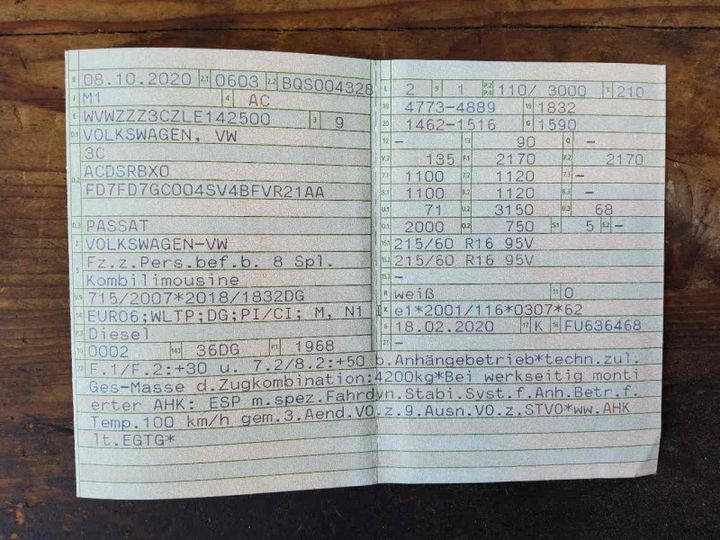 B 08.10.2020 2.1 0603 2.2 BQS004328
J M1 4 AC
E WVWZZZ3CZLE142500 3 9
D.1 VOLKSWAGEN, VW
3C
D.2 ACDSRBX0
FD7FD7GC004SV4BFVR21AA
D.3 PASSAT
2 VOLKSWAGEN-VW
5 Fz.z.Pers.bef.b. 8 Spl.
Kombilimousine
V.9 715/2007*2018/1832DG
14 EURO6;WLTP;DG;PI/CI; M, N1 I
P.3 Diesel
10 0002 14.1 36DG P.1 1968
L 2 9 1 P.2 P.4 110/ 3000 T 210
18 4773-4889 19 1832
20 1462-1516 G 1590
12 - 13 90 Q -
V.7 135 F.1 2170 F.2 2170
7.1 1100 7.2 1120 7.3 -
8.1 1100 8.2 1120 8.3 -
U.1 71 U.2 3150 U.3 68
O.1 2000 O.2 750 S.1 5 S.2 -
15.1 215/60 R16 95V
15.2 215/60 R16 95V
15.3 -
R weiß 11 0
K e1*2001/116*0307*62
6 18.02.2020 17 K 16 FU636468
21 -
22 F.1/F.2:+30 u. 7.2/8.2:+50 b.Anhängebetrieb*techn.zul.
Ges-Masse d.Zugkombination:4200kg*Bei werkseitig monti
erter AHK: ESP m.spez.Fahrdyn.Stabi.Syst.f.Anh.Betr.f.
Temp.100 km/h gem.3.Aend.VO.z.9.Ausn.VO.z.STVO*ww.AHK
lt.EGTG*